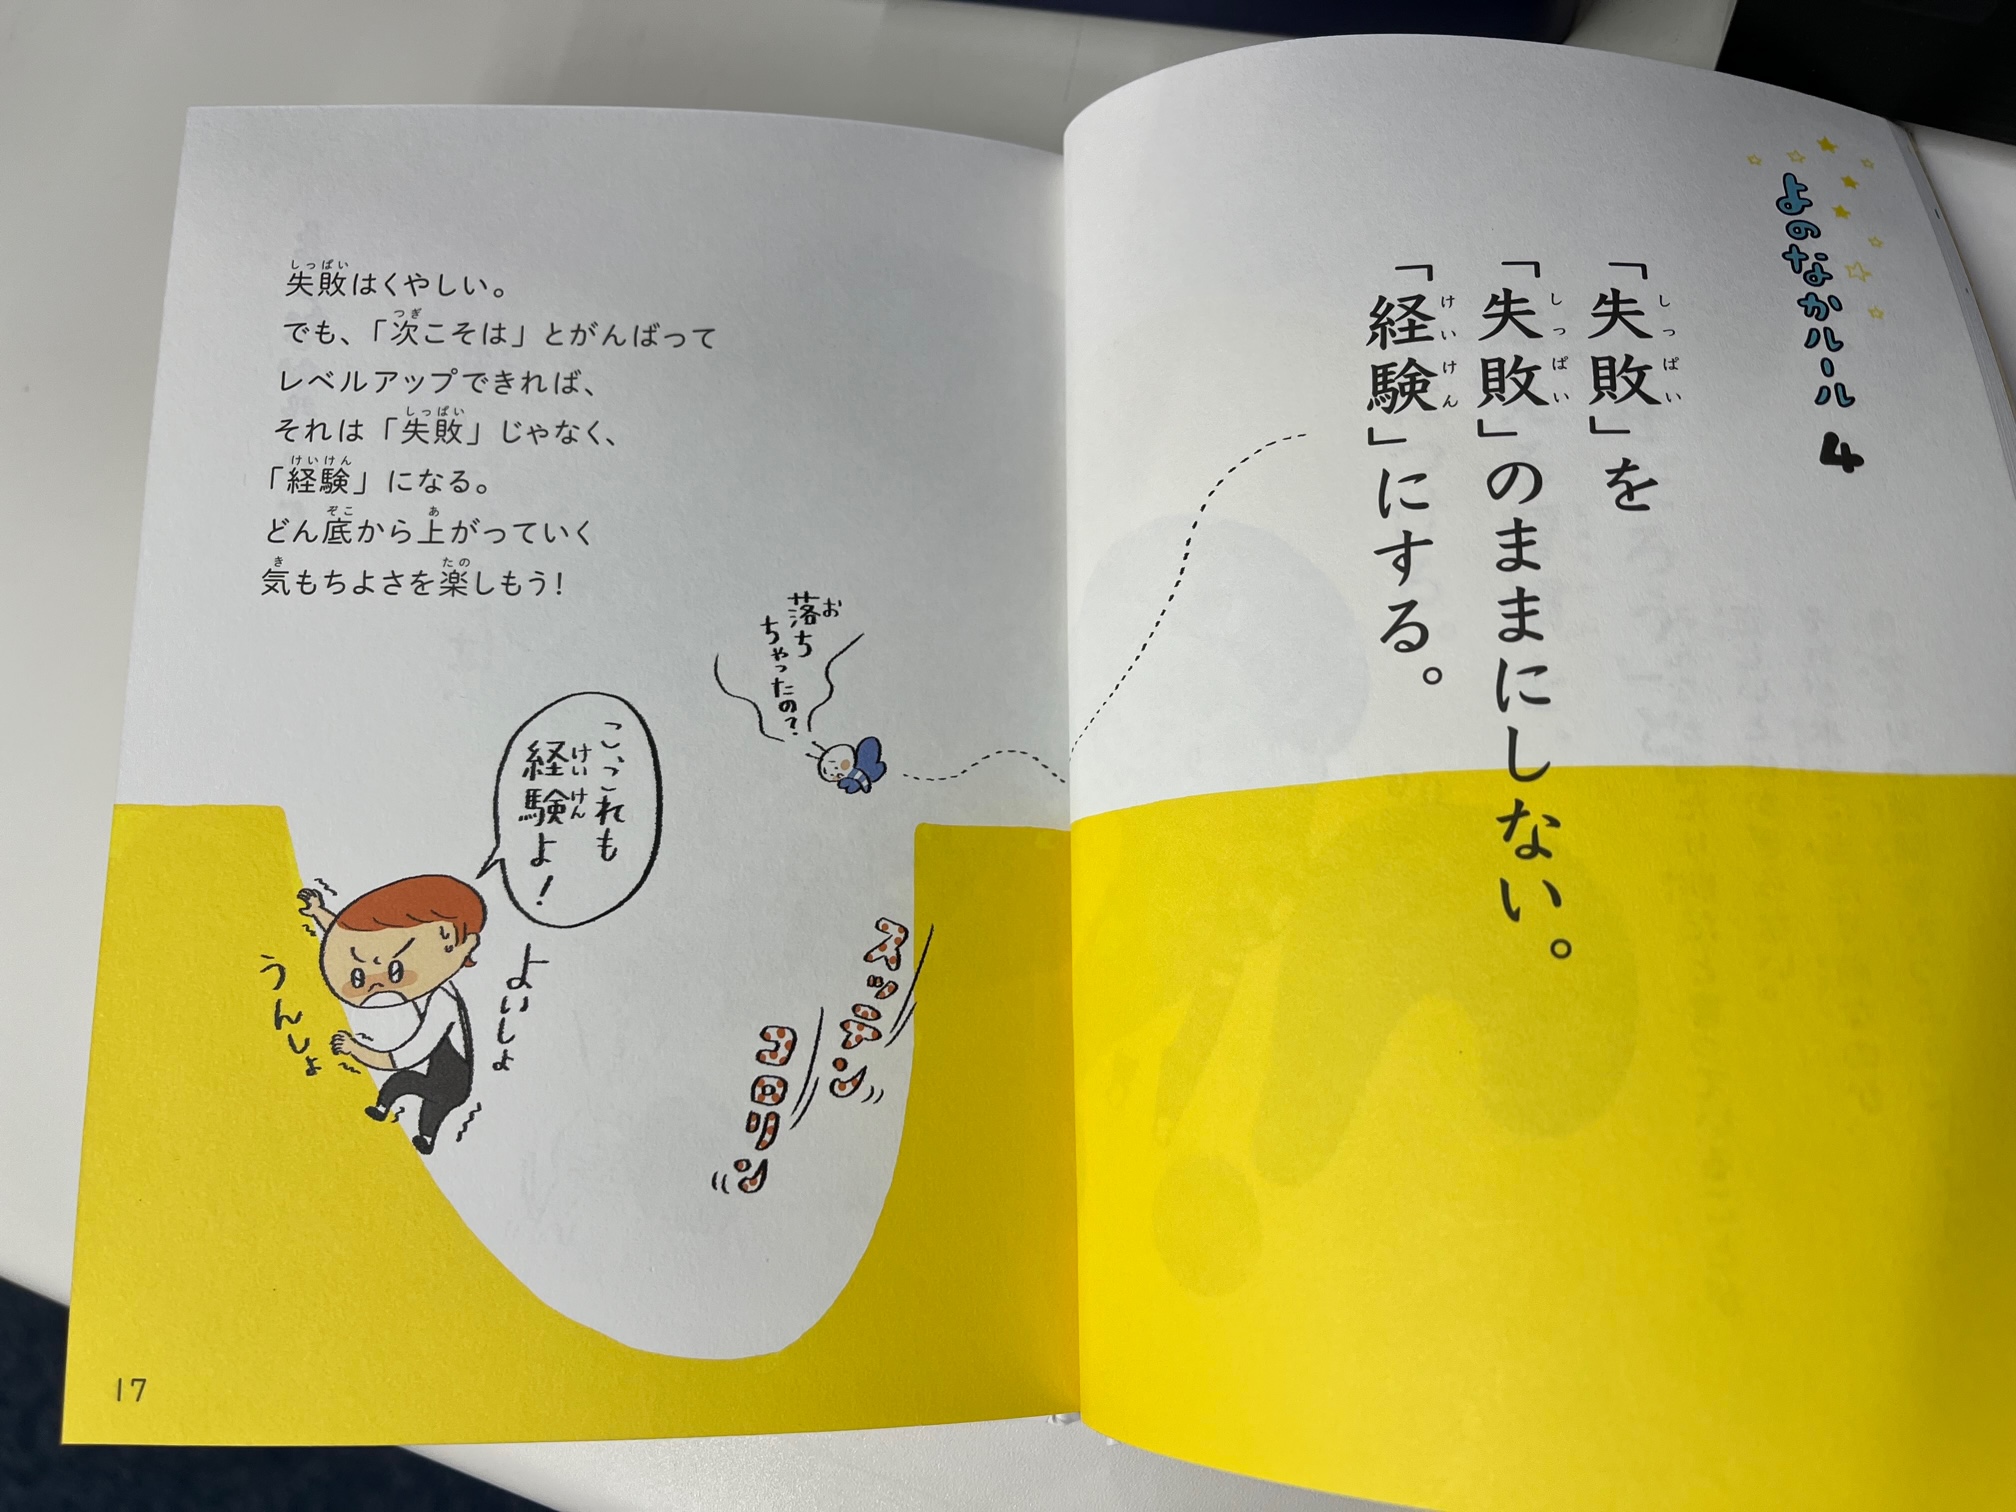 よのなかルール 4
「失敗」を
「失敗」のままにしない。
「経験」にする。
失敗はくやしい。
でも、「次こそは」とがんばって
レベルアップできれば、
それは「失敗」じゃなく、
「経験」になる。
どん底から上がっていく
気もちよさを楽しもう!
落ち
ちゃったの?
こ、これも
経験よ!
よいしょ
うんしょ
スットン
コロリン
17